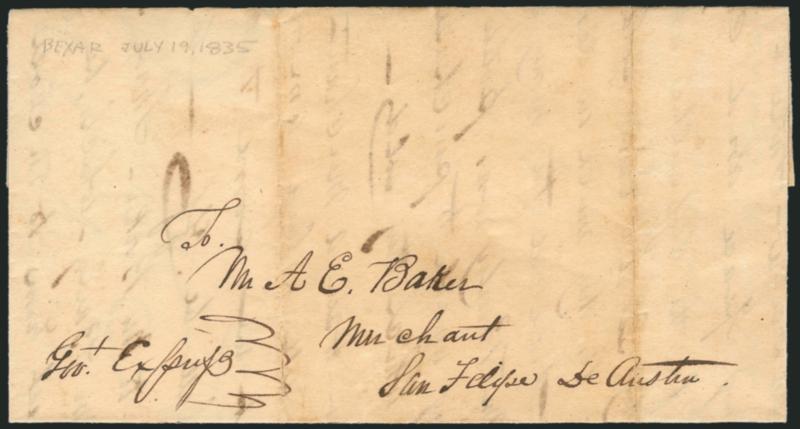 BEXAR JULY 19, 1835
To.
Mr A E. Baker
Merchant
Govt. Express
San Felipe De Austin.